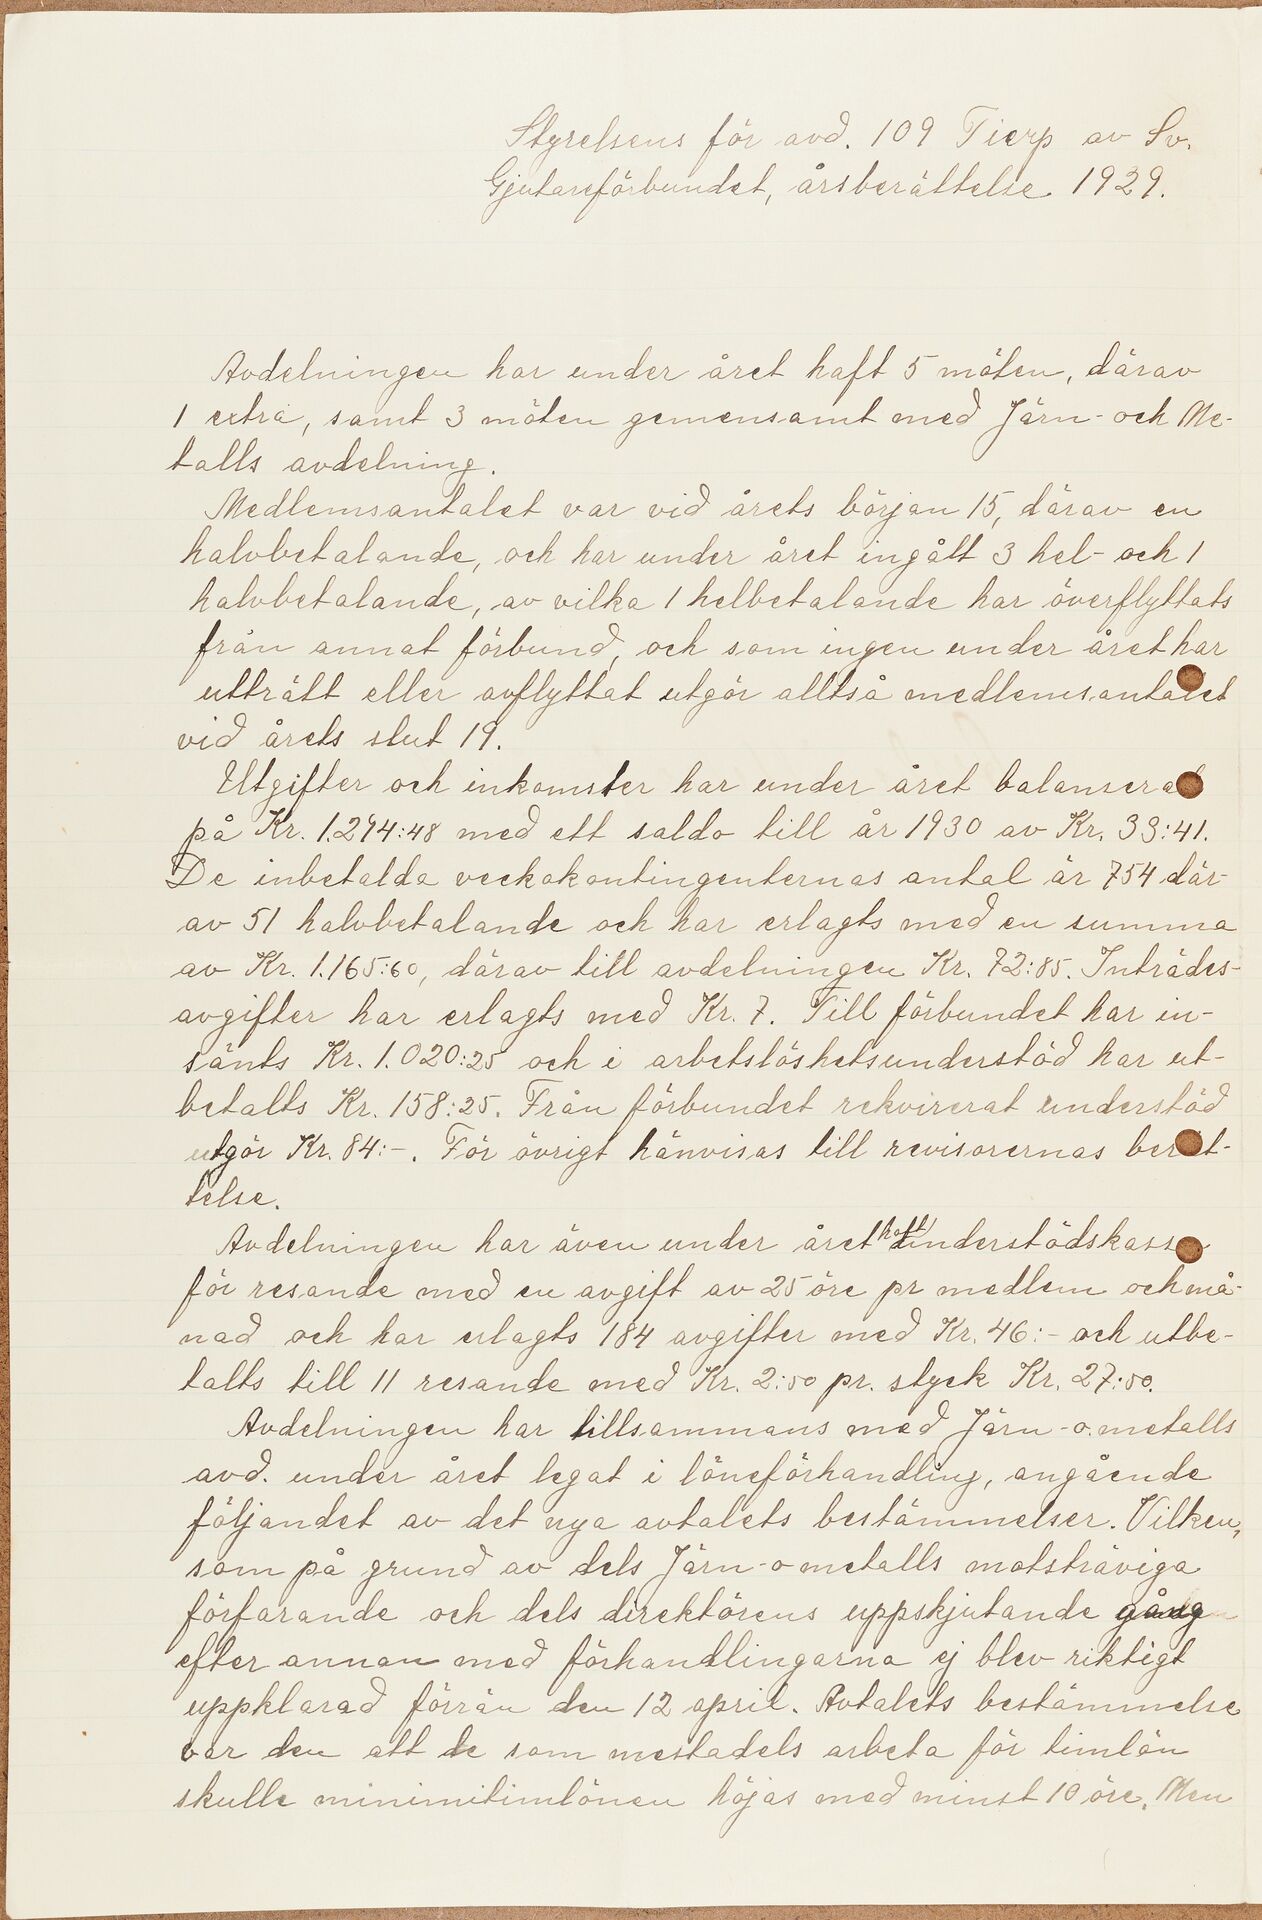 Styrelsens för avd. 109 Tierp av Sv.
Gjutareförbundet, årsberättelse 1929.
Avdelningen har under året haft 5 möten, därav
1 extra, samt 3 möten gemensamt med Järn- och Me-
talls avdelning.
Medlemsantalet var vid årets början 15, därav en
halvbetalande, och har under året ingått 3 hel- och 1
halvbetalande, av vilka 1 helbetalande har överflyttats
från annat förbund, och som ingen under året har
utträtt eller avflyttat utgör alltså medlemsantalet
vid årets slut 19.
Utgifter och inkomster har under året balanserat
på Kr. 1.294:48 med ett saldo till år 1930 av Kr. 33:41.
De inbetalda veckokontingenternas antal är 754 där-
av 51 halvbetalande och har erlagts med en summa
av Kr. 1.165:60, därav till avdelningen Kr. 72:85. Inträdes-
avgifter har erlagts med Kr. 7. Till förbundet har in-
sänts Kr. 1.020:25 och i arbetslöshetsunderstöd har ut-
betalts Kr. 158:25. Från förbundet rekvirerat understöd
utgör Kr. 84:-. För övrigt hänvisas till revisorernas berät-
telse.
Avdelningen har även under året haft understödskassa
för resande med en avgift av 25 öre pr medlem och må-
nad och har erlagts 184 avgifter med Kr. 46:- och utbe-
talts till 11 resande med Kr. 2:50 pr. styck Kr. 27:50.
Avdelningen har tillsammans med Järn-o. metalls
avd. under året legat i löneförhandling, angående
följandet av det nya avtalets bestämmelser. Vilken,
som på grund av dels Järn-o metalls motsträviga
förfarande och dels direktörens uppskjutande gång
efter annan med förhandlingarna ej blev riktigt
uppklarad förrän den 12 april. Avtalets bestämmelse
var den att de som mestadels arbeta för timlön
skulle minimitimlönen höjas med minst 10 öre. Men